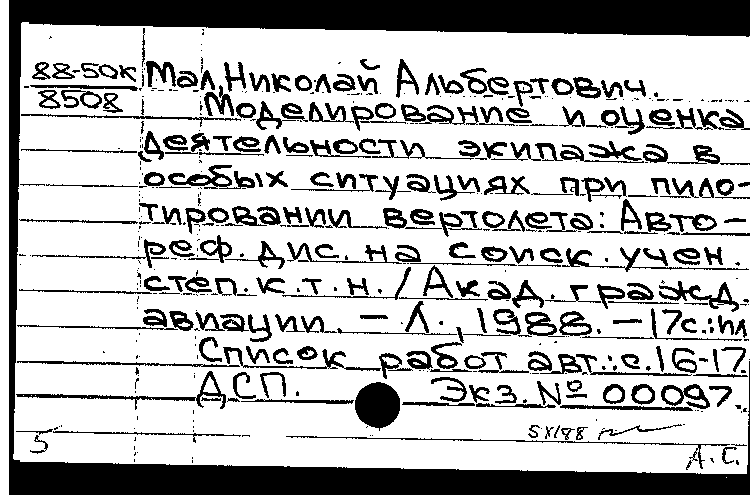 88-50к Мал, Николай Альбертович.
8508 Моделирование и оценка
деятельности экипажа в
особых ситуациях при пило-
тировании вертолета: Авто-
реф. дис. на соиск. учен.
степ. к.т.н. / Акад. гражд.
авиации. – Л., 1988. – 17с.: ил
Список работ авт.: с. 16-17.
ДСП. Экз. № 00097.
5
А.С.